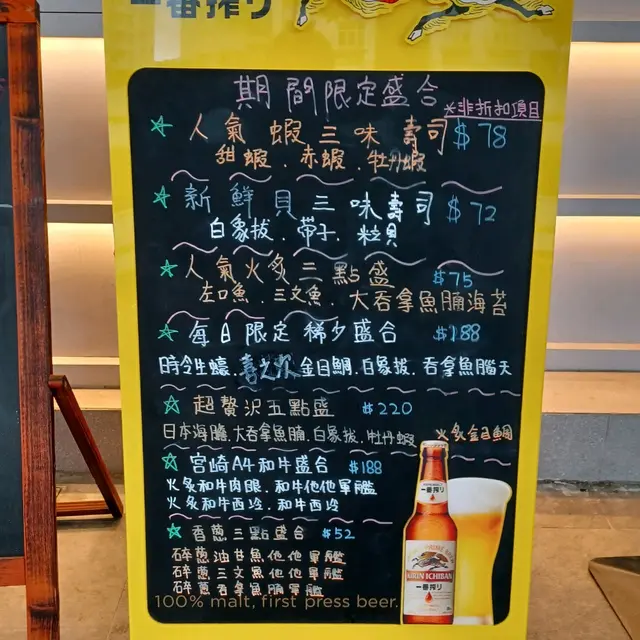 一番搾り
期間限定盛合
*非折扣項目
人氣蝦三味壽司 $78
甜蝦.赤蝦.牡丹蝦
新鮮貝三味壽司 $72
白象拔.帶子.粒貝
人氣火炙三點盛 $75
左口魚.三文魚.大吞拿魚腩海苔
每日限定稀少盛合 $188
時令生蠔.喜之次.金目鯛.白象拔.吞拿魚腦天
超贅沢五點盛 $220
日本海膽.大吞拿魚腩.白象拔.牡丹蝦 火炙金目鯛
宮崎A4和牛盛合 $188
火炙和牛肉眼.和牛他他軍艦
火炙和牛西冷.和牛西冷
香蔥三點盛合 $52
碎蔥油甘魚他他軍艦
碎蔥三文魚他他軍艦
碎蔥吞拿魚腩軍艦
一番搾り
KIRIN ICHIBAN
一番搾り
100% malt, first press beer.